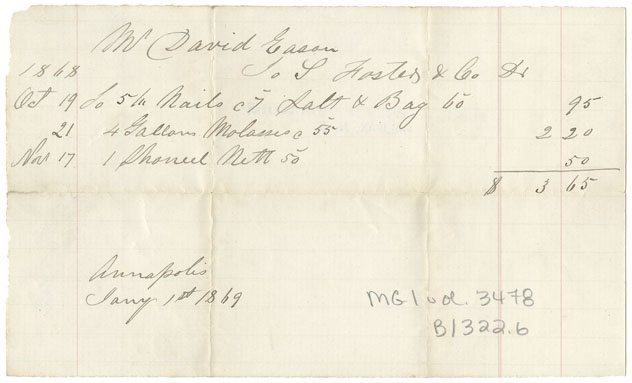 Mr David Eason
1868 To S Foster & Co Dr
Oct 19 To 5 lb Nails c 7 Salt & Bag 60 95
21 4 Gallons Molasses c 55 2 20
Nov 17 1 Nett 50 50
$ 3 65
Annapolis
Jany 1st 1869
MG1 vol. 3478
B1322.6